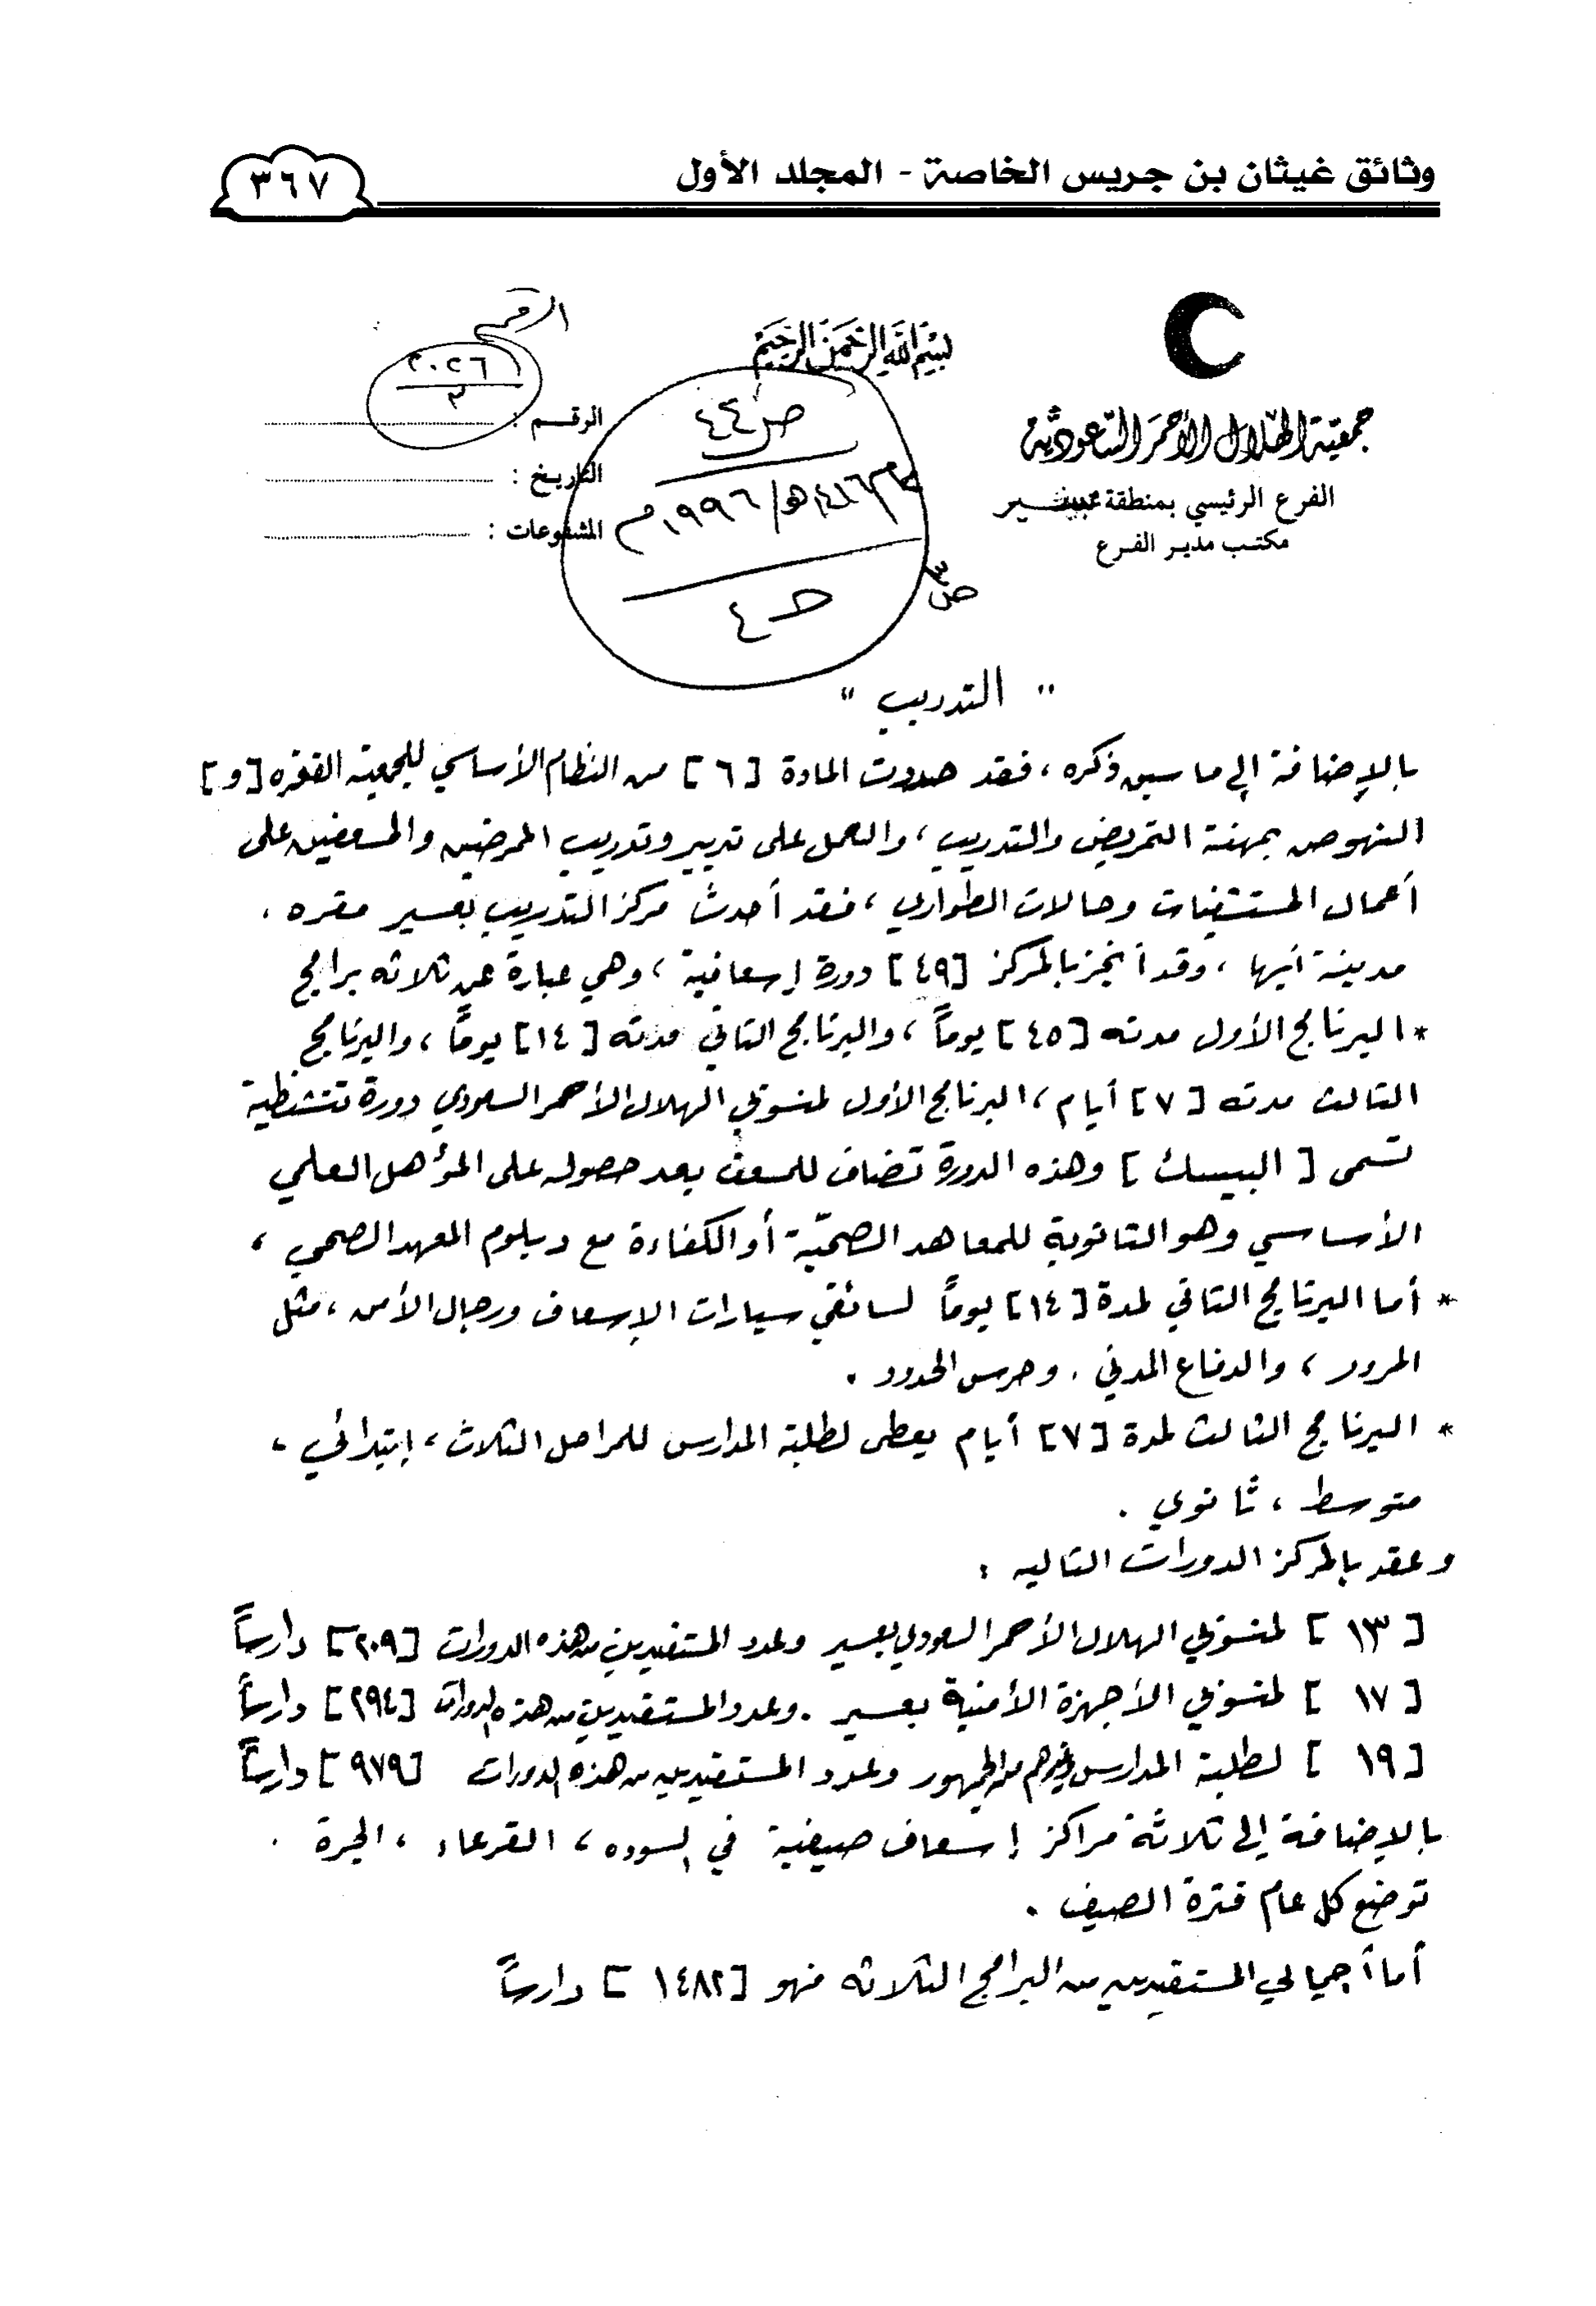 وثائق غيثان بن جريس الخاصة - المجلد الأول
٣٦٧
بسم الله الرحمن الرحيم
جمعية الهلال الأحمر السعودية
الفرع الرئيسي بمنطقة عسير
مكتب مدير الفرع
الرقم :
٢٠٢٦
٣
التاريخ :
المشفوعات :
ص ٤٤
١٤١٦هـ/ ١٩٩٦م
ح ٤
ص٣
" التدريب "
بالإضافة إلى ما سبق ذكره ، فقد حددت المادة [ ٦ ] من النظام الأساسي للجمعية الفقره [ و ]
النهوض بمهنة التمريض والتدريب ، والعمل على تدبير وتدريب الممرضين والمسعفين على
أعمال المستشفيات وحالات الطوارئ ، فقد أحدث مركز التدريب بعسير مقره .
مدينة أبها ، وقد أنجز بالمركز [ ٤٩ ] دورة إسعافية ، وهي عبارة عن ثلاثه برامج
* البرنامج الأول مدته [ ٤٥ ] يوماً ، والبرنامج الثاني مدته [ ١٤ ] يوماً ، والبرنامج
الثالث مدته [ ٧ ] أيام ، البرنامج الأول لمنسوبي الهلال الأحمر السعودي دورة تنشيطية
تسمى [ البيسك ] وهذه الدورة تضاف للمسعف بعد حصوله على المؤهل العلمي
الأساسي وهو الثانوية للمعاهد الصحيّة أو الكفاءة مع دبلوم المعهد الصحي ،
* أما البرنامج الثاني لمدة [ ١٤ ] يوماً لسائقي سيارات الإسعاف ورجال الأمن ، مثل
المرور ، والدفاع المدني . وحرس الحدود .
* البرنامج الثالث لمدة [ ٧ ] أيام يعطى لطلبة المدارس للمراحل الثلاث ، إبتدائي ،
متوسط ، ثانوي .
وعقد بالمركز الدورات التاليه :
[ ١٣ ] لمنسوبي الهلال الأحمر السعودي بعسير وعدد المستفيدين من هذه الدورات [ ٢٠٩ ] دارساً
[ ١٧ ] لمنسوبي الأجهزة الأمنية بعسير . وعدد المستفيدين من هذه الدورات [ ٢٩٤ ] دارساً
[ ١٩ ] لطلبة المدارس وغيرهم من الجمهور وعدد المستفيدين من هذه الدورات [ ٩٧٩ ] دارساً
بالإضافة إلى ثلاثة مراكز إسعاف صيفية في السوده ، القرعاء ، الحرة .
توضع كل عام فترة الصيف .
أما أجمالي المستفيدين من البرامج الثلاثه فهو [ ١٤٨٢ ] دارساً